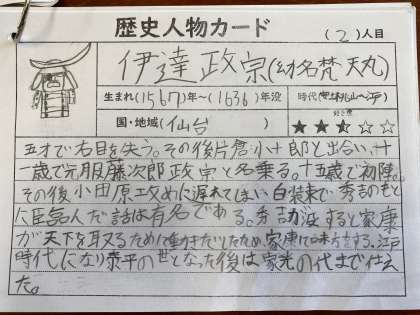 歴史人物カード (2)人目
伊達政宗(幼名梵天丸)
生まれ(1567)年〜(1636)年没 時代(安土桃山〜江戸)
国・地域(仙台) 好き度
★★★☆☆
五才で右目を失う。その後片倉小十郎と出会い、十
一歳で元服藤次郎政宗と名乗る。十五歳で初陣。
その後小田原攻めに遅れてしまい白装束で秀吉のもと
に臣んだ話は有名である。秀吉没すると家康
が天下を取るために動きだしたため、家康に味方する。江戸
時代になり泰平の世となった後は家光の代まで仕え
た。